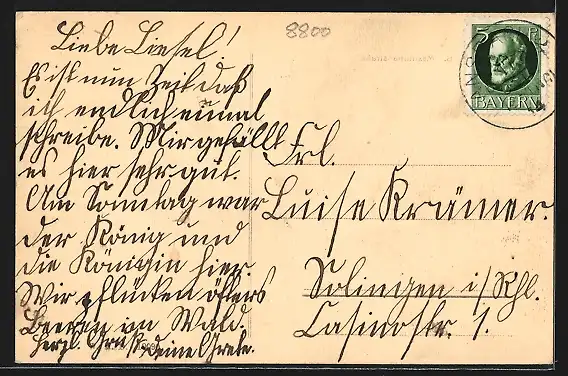 Liebe Liesel!
Es ist nun Zeit daß
ich endlich einmal
schreibe. Mir gefällt
es hier sehr gut.
Am Sonntag war
der König und
die Königin hier.
Wir pflücken öfters
Beeren im Wald.
Herzl. Gruß, deine Grete.
8800
5 Pf
BAYERN
Frl.
Luise Krämer.
Solingen i/Rhl.
Casinostr. 1.